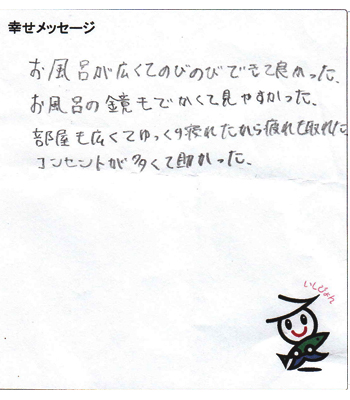 幸せメッセージ
お風呂が広くてのびのびできて良かった、
お風呂の鏡もでかくて見やすかった。
部屋も広くてゆっくり寝れたから疲れも取れた
コンセントが多くて助かった。
いしぴょん